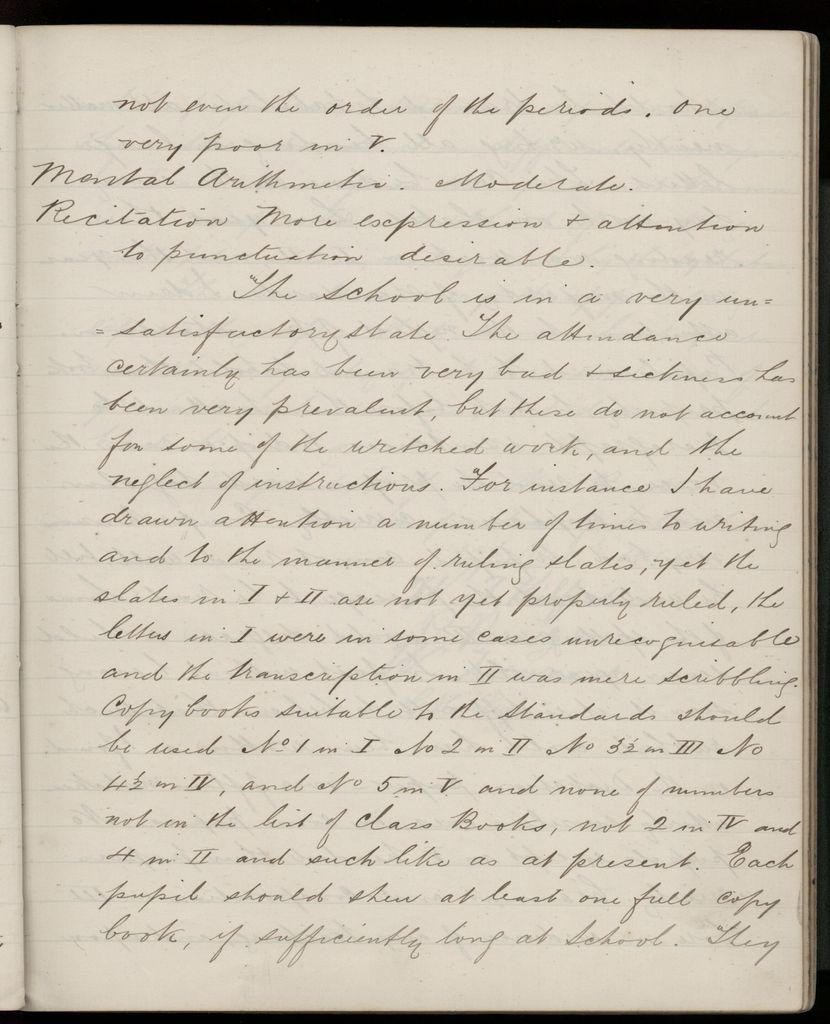 not even the order of the periods. One
very poor in V.
Mental Arithmetic. Moderate.
Recitation More expression & attention
to punctuation desirable.
"The School is in a very un=
=satisfactory state. The attendance
certainly has been very bad & sickness has
been very prevalent, but these do not account
for some of the wretched work, and the
neglect of instructions. For instance I have
drawn attention a number of times to writing
and to the manner of ruling slates, yet the
slates in I & II are not yet properly ruled, the
letters in I were in some cases unrecognisable
and the transcription in II was mere scribbling.
Copy books suitable to the standards should
be used No 1 in I No 2 in II No 3½ in III No
4½ in IV, and No 5 in V and none of numbers
not in the list of Class Books, not 2 in IV and
4 in II and such like as at present. Each
pupil should shew at least one full copy
book, if sufficiently long at School. They